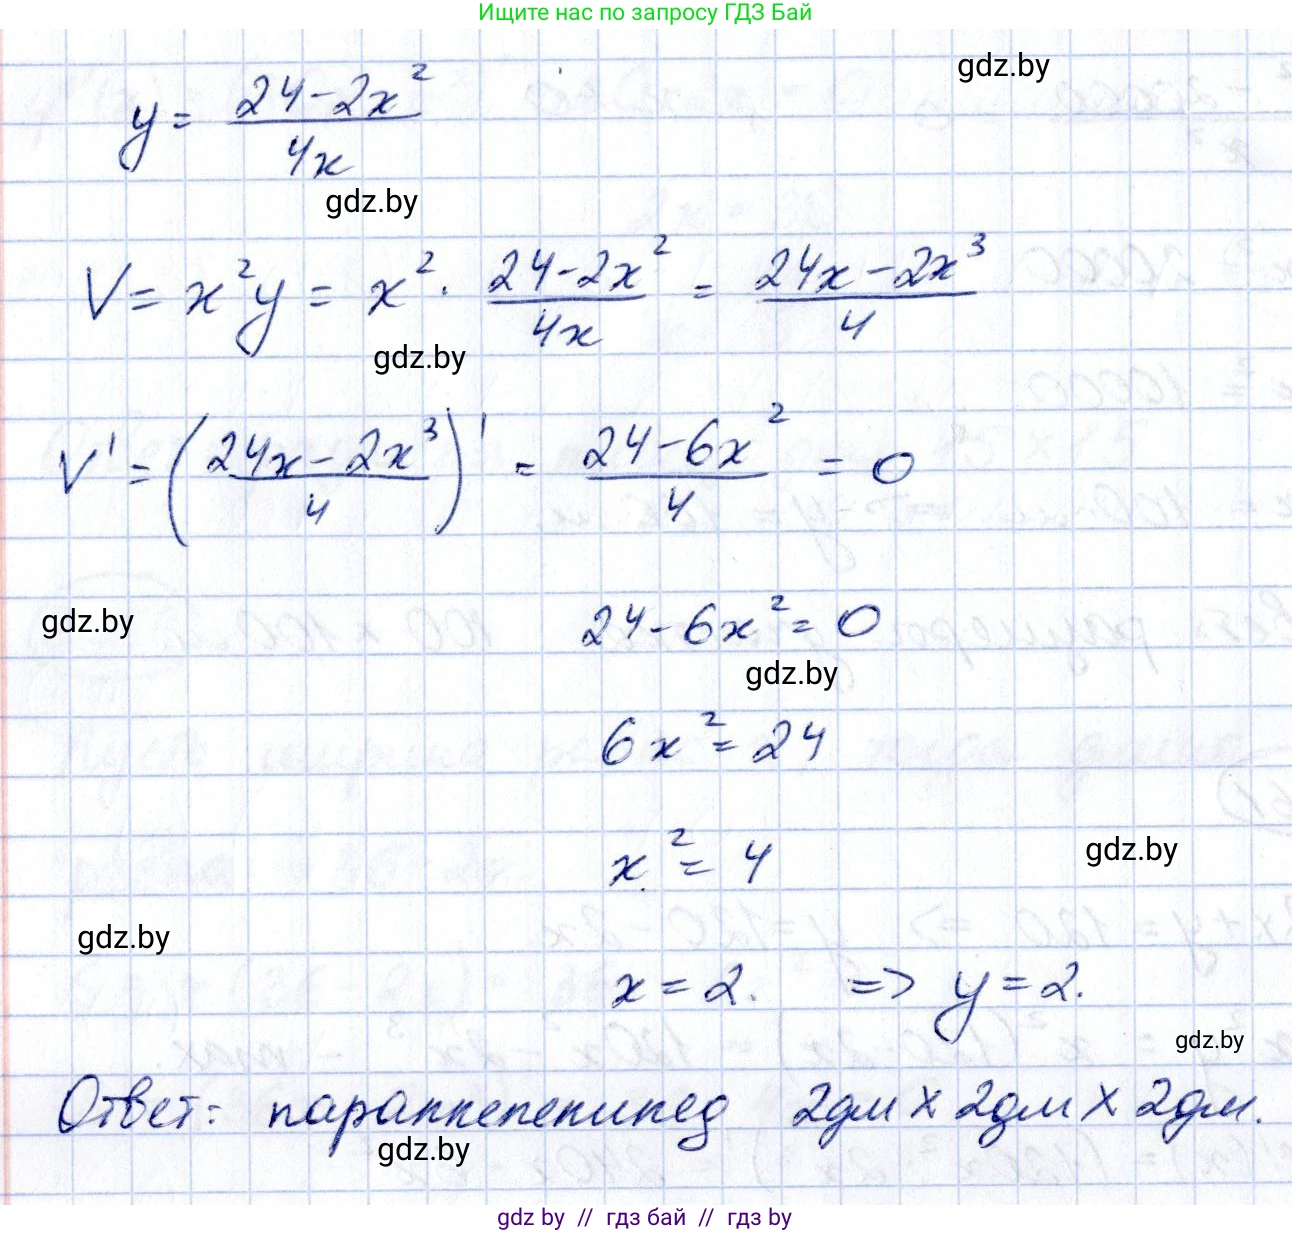 Ищите нас по запросу ГДЗ Бай
gdz.by
y = (24-2x²)/(4x)
gdz.by
V = x²y = x² · (24-2x²)/(4x) = (24x-2x³)/4
gdz.by
V' = ((24x-2x³)/4)' = (24-6x²)/4 = 0
gdz.by
24-6x² = 0
gdz.by
6x² = 24
x² = 4
gdz.by
gdz.by
x = 2. => y = 2.
gdz.by
Ответ: параллелепипед 2дм x 2дм x 2дм.
gdz.by
gdz by // гдз бай // гдз by